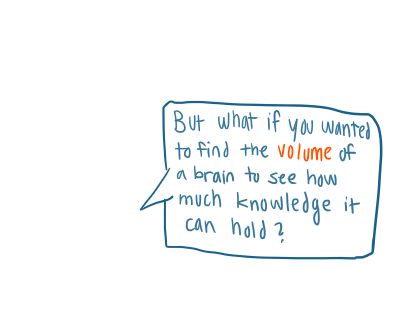 But what if you wanted
to find the volume of
a brain to see how
much knowledge it
can hold?